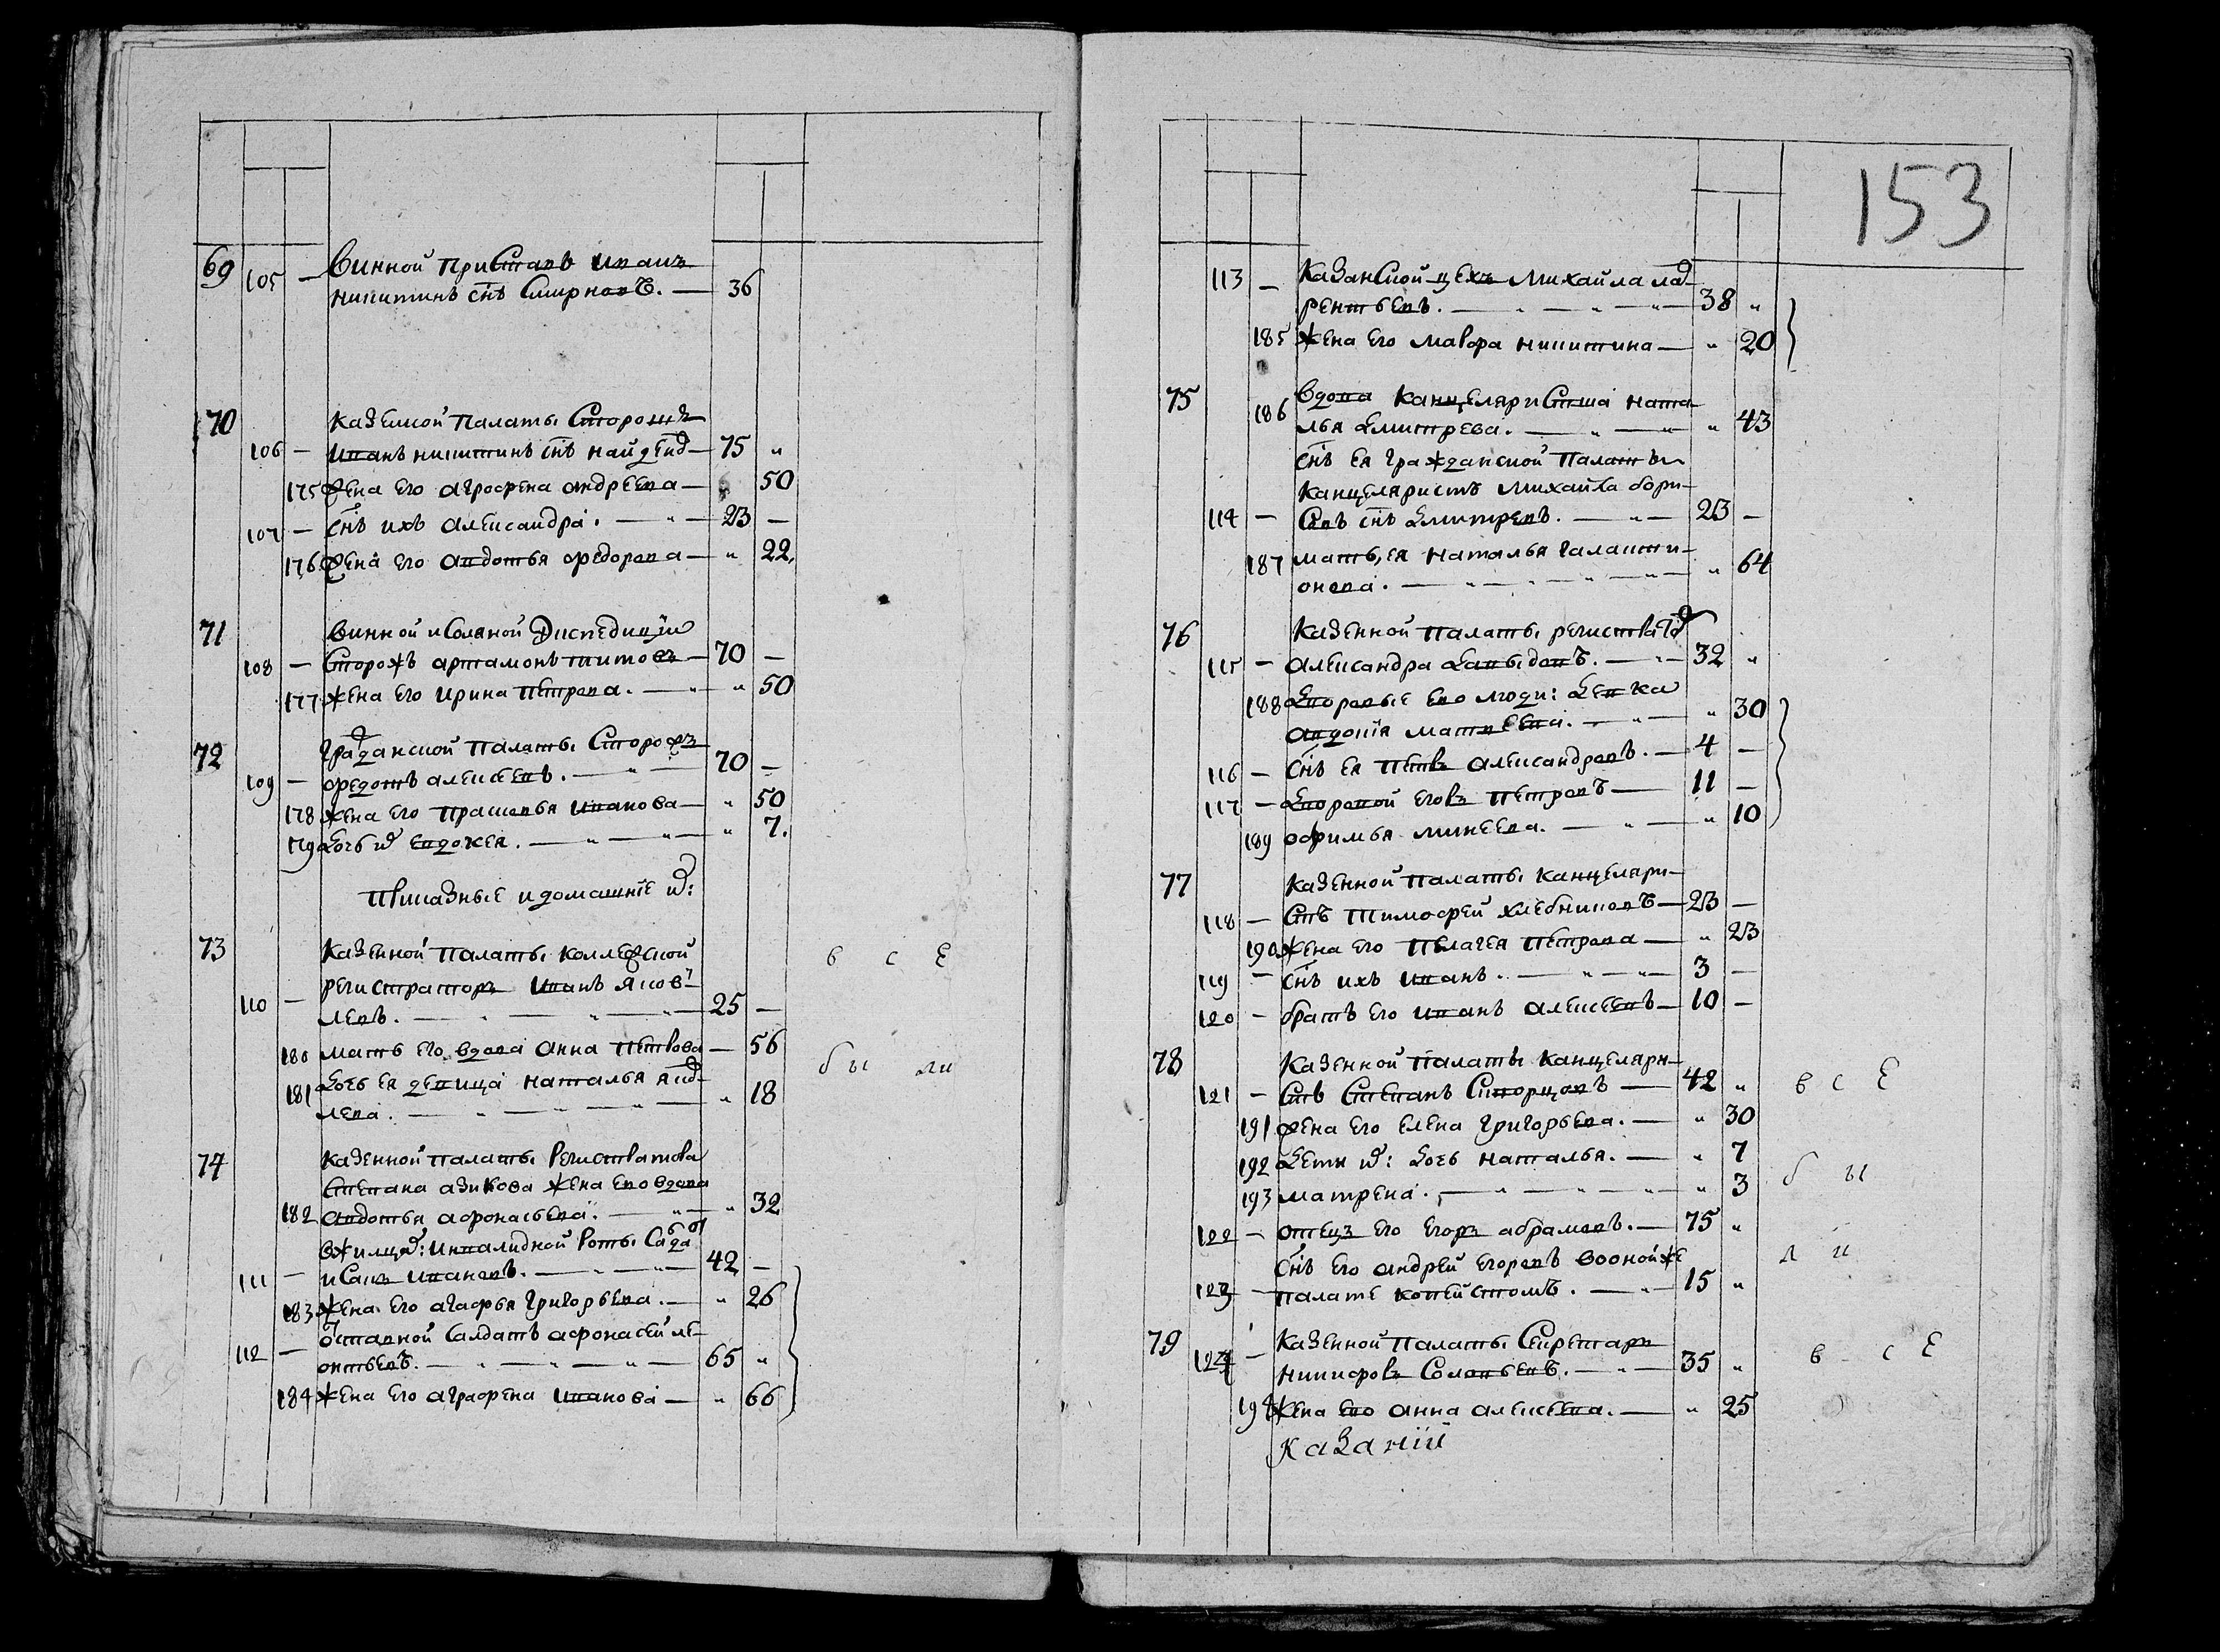 69 105 — Винной приставъ иванъ
никитинъ снъ Смирновъ. — 36
70 Каземной палаты Сторожъ
106 — иванъ никитинъ снъ найдено — 75 „
175 жена его агрофена андреева — „ 50
107 — снъ ихъ александра. — „ — 23 —
176 жена его авдотья федорова — „ 22.
71 Винной и Соляной Экспедиции
108 — Сторожъ артамонъ титовъ — 70 —
177 жена его ирина петрова. — „ — „ 50
72 гражданской палаты Сторожъ
109 — федотъ алексеевъ. — „ — 70 —
178 жена его прасковья иванова — „ 50
179 дочь их евдокея. — „ — „ — „ 7.
приказные и домашние их:
73 Казенной палаты коллежской в с е
110 — регистраторъ иванъ яков-
левъ. — „ — „ — „ — 25 —
180 мать его вдова анна петрова — 56
бы ли
181 дочь ея девица наталья яков-
лева. — „ — „ — „ — „ 18
74 Казенной палаты регистратора
Степана азикова жена ево вдова
182 авдотья афонасьева. — „ — „ 32
в жилцах: инвалидной роты Салдат
111 — исакъ ивановъ. — „ — „ — 42 —
183 жена его агафья григорьева. — „ 26
112 — отставной Салдатъ афонасей ле-
онтьевъ. — „ — „ — „ — 65 „
184 жена его аграфена иванова — „ 66
153
113 — Казанской цехъ михайла лав-
рентьевъ. — „ — „ — „ — 38 „
185 жена его мавра никитина — „ 20
75 186 вдова канцеляристша ната-
лья дмитрева. — „ — „ — „ 43
снъ ея гражданской палаты
канцеляристъ михайла бори-
114 — совъ снъ дмитревъ. — „ — 23 —
187 мать, ея наталья галакти-
онова. — „ — „ — „ — „ 64
76 Казенной палаты регистратор
115 — александра давыдовъ. — „ — 32 „
188 дворовые ево люди: девка
авдотія матвеева. — „ — „ 30
116 — снъ ея петръ александровъ. — 4 —
117 — дворовой егоръ петровъ — 11 —
189 офимья минеева. — „ — „ 10
77 Казенной палаты канцеляри-
118 — стъ тимофей хлебниковъ — 23 —
190 жена его пелагея петрова — „ 23
119 — снъ ихъ иванъ. — „ — „ — 3 —
120 — братъ его иванъ алексеевъ — 10 —
78 Казенной палаты канцеляри-
121 — стъ Степанъ Скворцовъ — 42 „ в с е
191 жена его елена григорьева. — „ 30
192 дети их: дочь наталья. — „ 7
193 матрена. — „ — „ — „ — „ 3 б ы
122 — отецъ его егоръ абрамовъ. — 75 „
снъ его андрей егоровъ во оной же л и
123 — палате копеистомъ. — „ — 15 „
79 Казенной палаты Секретарь
124 — никифоръ Соловьевъ. — „ — 35 „ в с е
194 жена ево анна алексеева. — „ 25
Казаніи